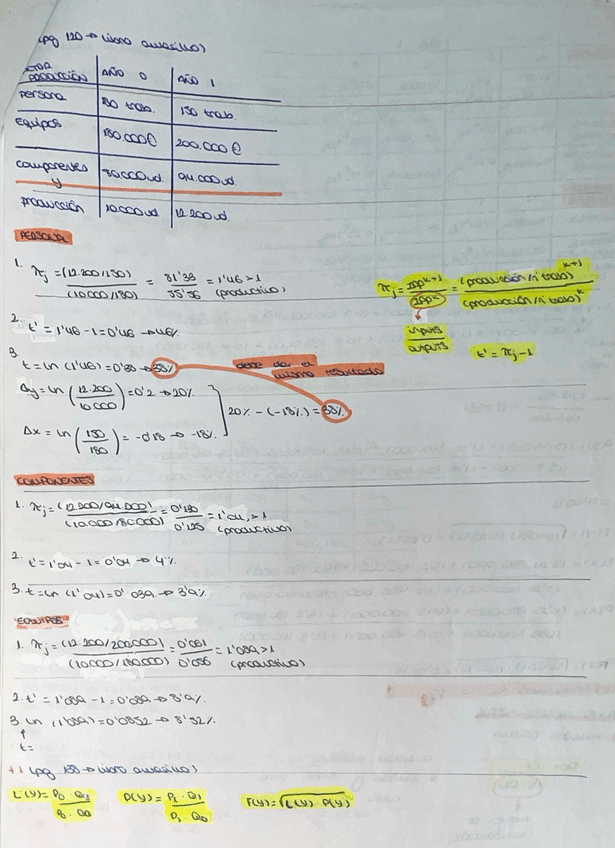 (pg 120 → libro amarillo)
FACTOR PRODUCCIÓN | AÑO 0 | AÑO 1
persona | 180 trab. | 150 trab.
equipos | 180.000€ | 200.000€
componentes y | 80.000ud. | 94.000ud.
producción | 10.000ud | 12.200ud.
PERSONAL
1. πj = (12.200/150) / (10.000/180) = 81'33 / 55'56 = 1'46 > 1 (productivo)
πj = IPP^k+1 / IPP^k = (producción/nº trab)^k+1 / (producción/nº trab)^k
inputs
outputs
t' = πj - 1
2. t' = 1'46 - 1 = 0'46 → 46%
3.
t = ln (1'46) = 0'38 → 38%
debe dar el mismo resultado
Δy = ln (12.200 / 10.000) = 0'2 → 20%
20% - (-18%) = 38%
Δx = ln (150 / 180) = -0'18 → -18%
COMPONENTES
1. πj = (12.200/94.000) / (10.000/80.000) = 0'130 / 0'125 = 1'04 > 1 (productivo)
2. t' = 1'04 - 1 = 0'04 → 4%
3. t = ln (1'04) = 0'039 → 3'9%
EQUIPOS
1. πj = (12.200/200.000) / (10.000/180.000) = 0'061 / 0'056 = 1'089 > 1 (productivo)
2. t' = 1'089 - 1 = 0'089 → 8'9%
3. ln (1'089) = 0'0852 → 8'52%
↑
t=
(pg 138 → libro amarillo)
L(y) = P0 · Q1 / P0 · Q0
P(y) = P1 · Q1 / P1 · Q0
F(y) = √L(y) · P(y)